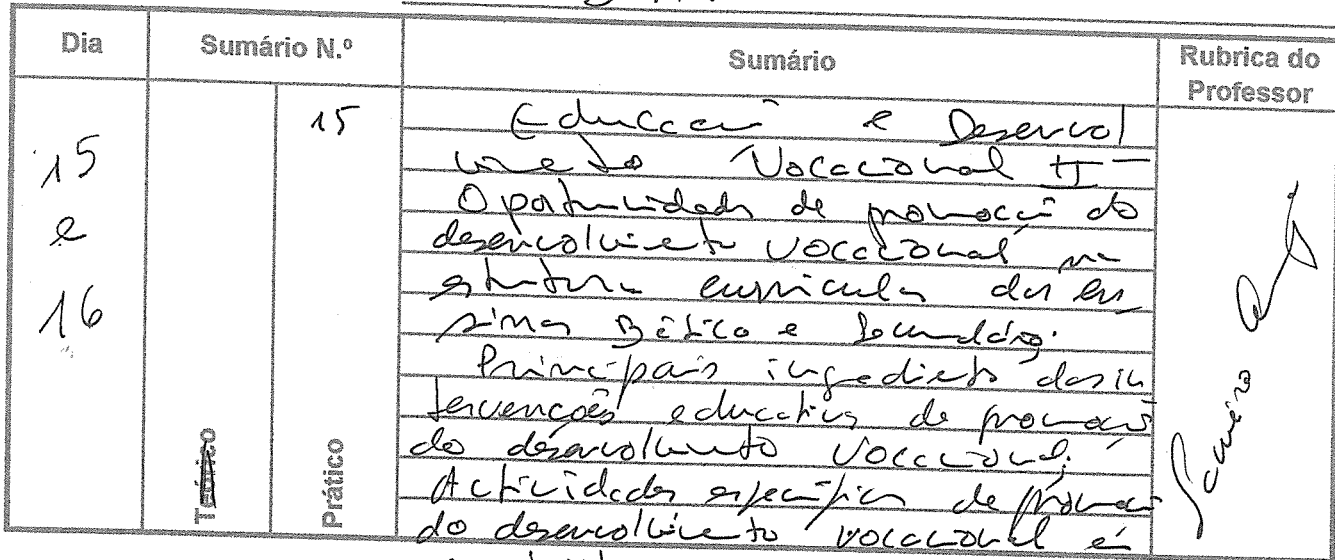 Dia
Sumário N.º
Sumário
Rubrica do
Professor
15
e
16
15
Teórico
Prático
Educação e Desenvol
vimento Vocacional II –
Oportunidades de promoção do
desenvolvimento vocacional na
estrutura curricular dos en
sinos Básico e Secundário.
Principais ingredientes das in
tervenções educativas de promoção
do desenvolvimento vocacional;
Actividades específicas de promoção
do desenvolvimento vocacional em